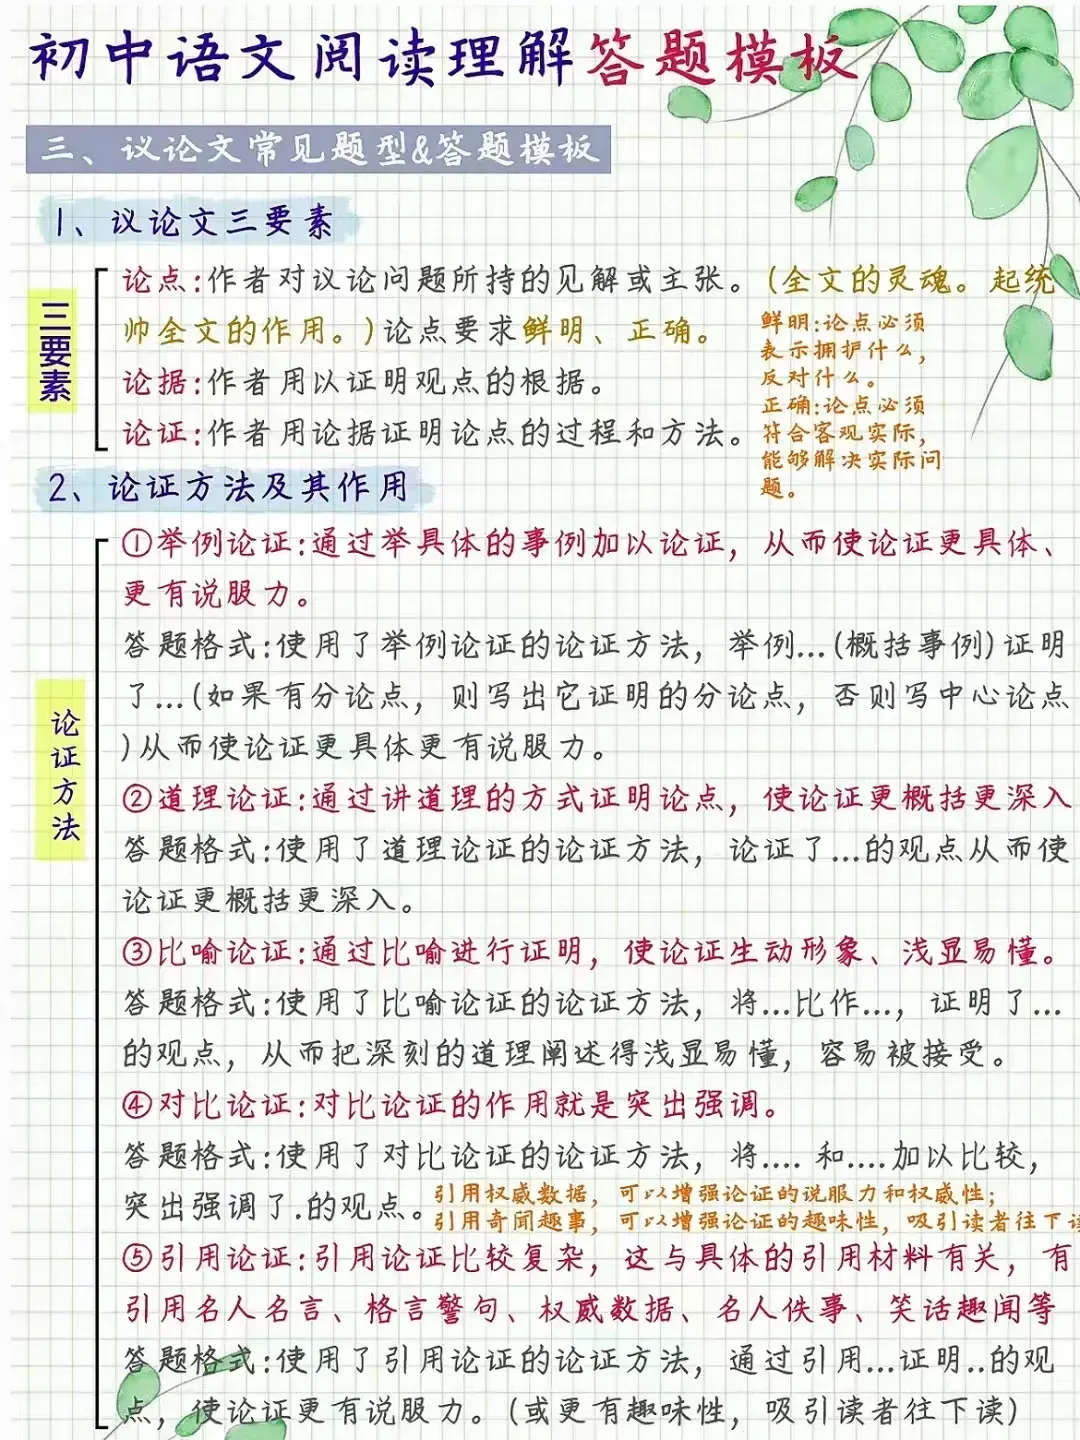 初中语文阅读理解答题模板
三、议论文常见题型&答题模板
1、议论文三要素
三要素
论点:作者对议论问题所持的见解或主张。(全文的灵魂。起统
帅全文的作用。)论点要求鲜明、正确。
论据:作者用以证明观点的根据。
论证:作者用论据证明论点的过程和方法。
鲜明:论点必须
表示拥护什么,
反对什么。
正确:论点必须
符合客观实际,
能够解决实际问
题。
2、论证方法及其作用
论证方法
①举例论证:通过举具体的事例加以论证,从而使论证更具体、
更有说服力。
答题格式:使用了举例论证的论证方法,举例...(概括事例)证明
了...(如果有分论点,则写出它证明的分论点,否则写中心论点
)从而使论证更具体更有说服力。
②道理论证:通过讲道理的方式证明论点,使论证更概括更深入
答题格式:使用了道理论证的论证方法,论证了...的观点从而使
论证更概括更深入。
③比喻论证:通过比喻进行证明,使论证生动形象、浅显易懂。
答题格式:使用了比喻论证的论证方法,将...比作...,证明了...
的观点,从而把深刻的道理阐述得浅显易懂,容易被接受。
④对比论证:对比论证的作用就是突出强调。
答题格式:使用了对比论证的论证方法,将.... 和....加以比较,
突出强调了.的观点。
引用权威数据,可以增强论证的说服力和权威性;
引用奇闻趣事,可以增强论证的趣味性,吸引读者往下读
⑤引用论证:引用论证比较复杂,这与具体的引用材料有关,有
引用名人名言、格言警句、权威数据、名人佚事、笑话趣闻等
答题格式:使用了引用论证的论证方法,通过引用...证明..的观
点,使论证更有说服力。(或更有趣味性,吸引读者往下读)